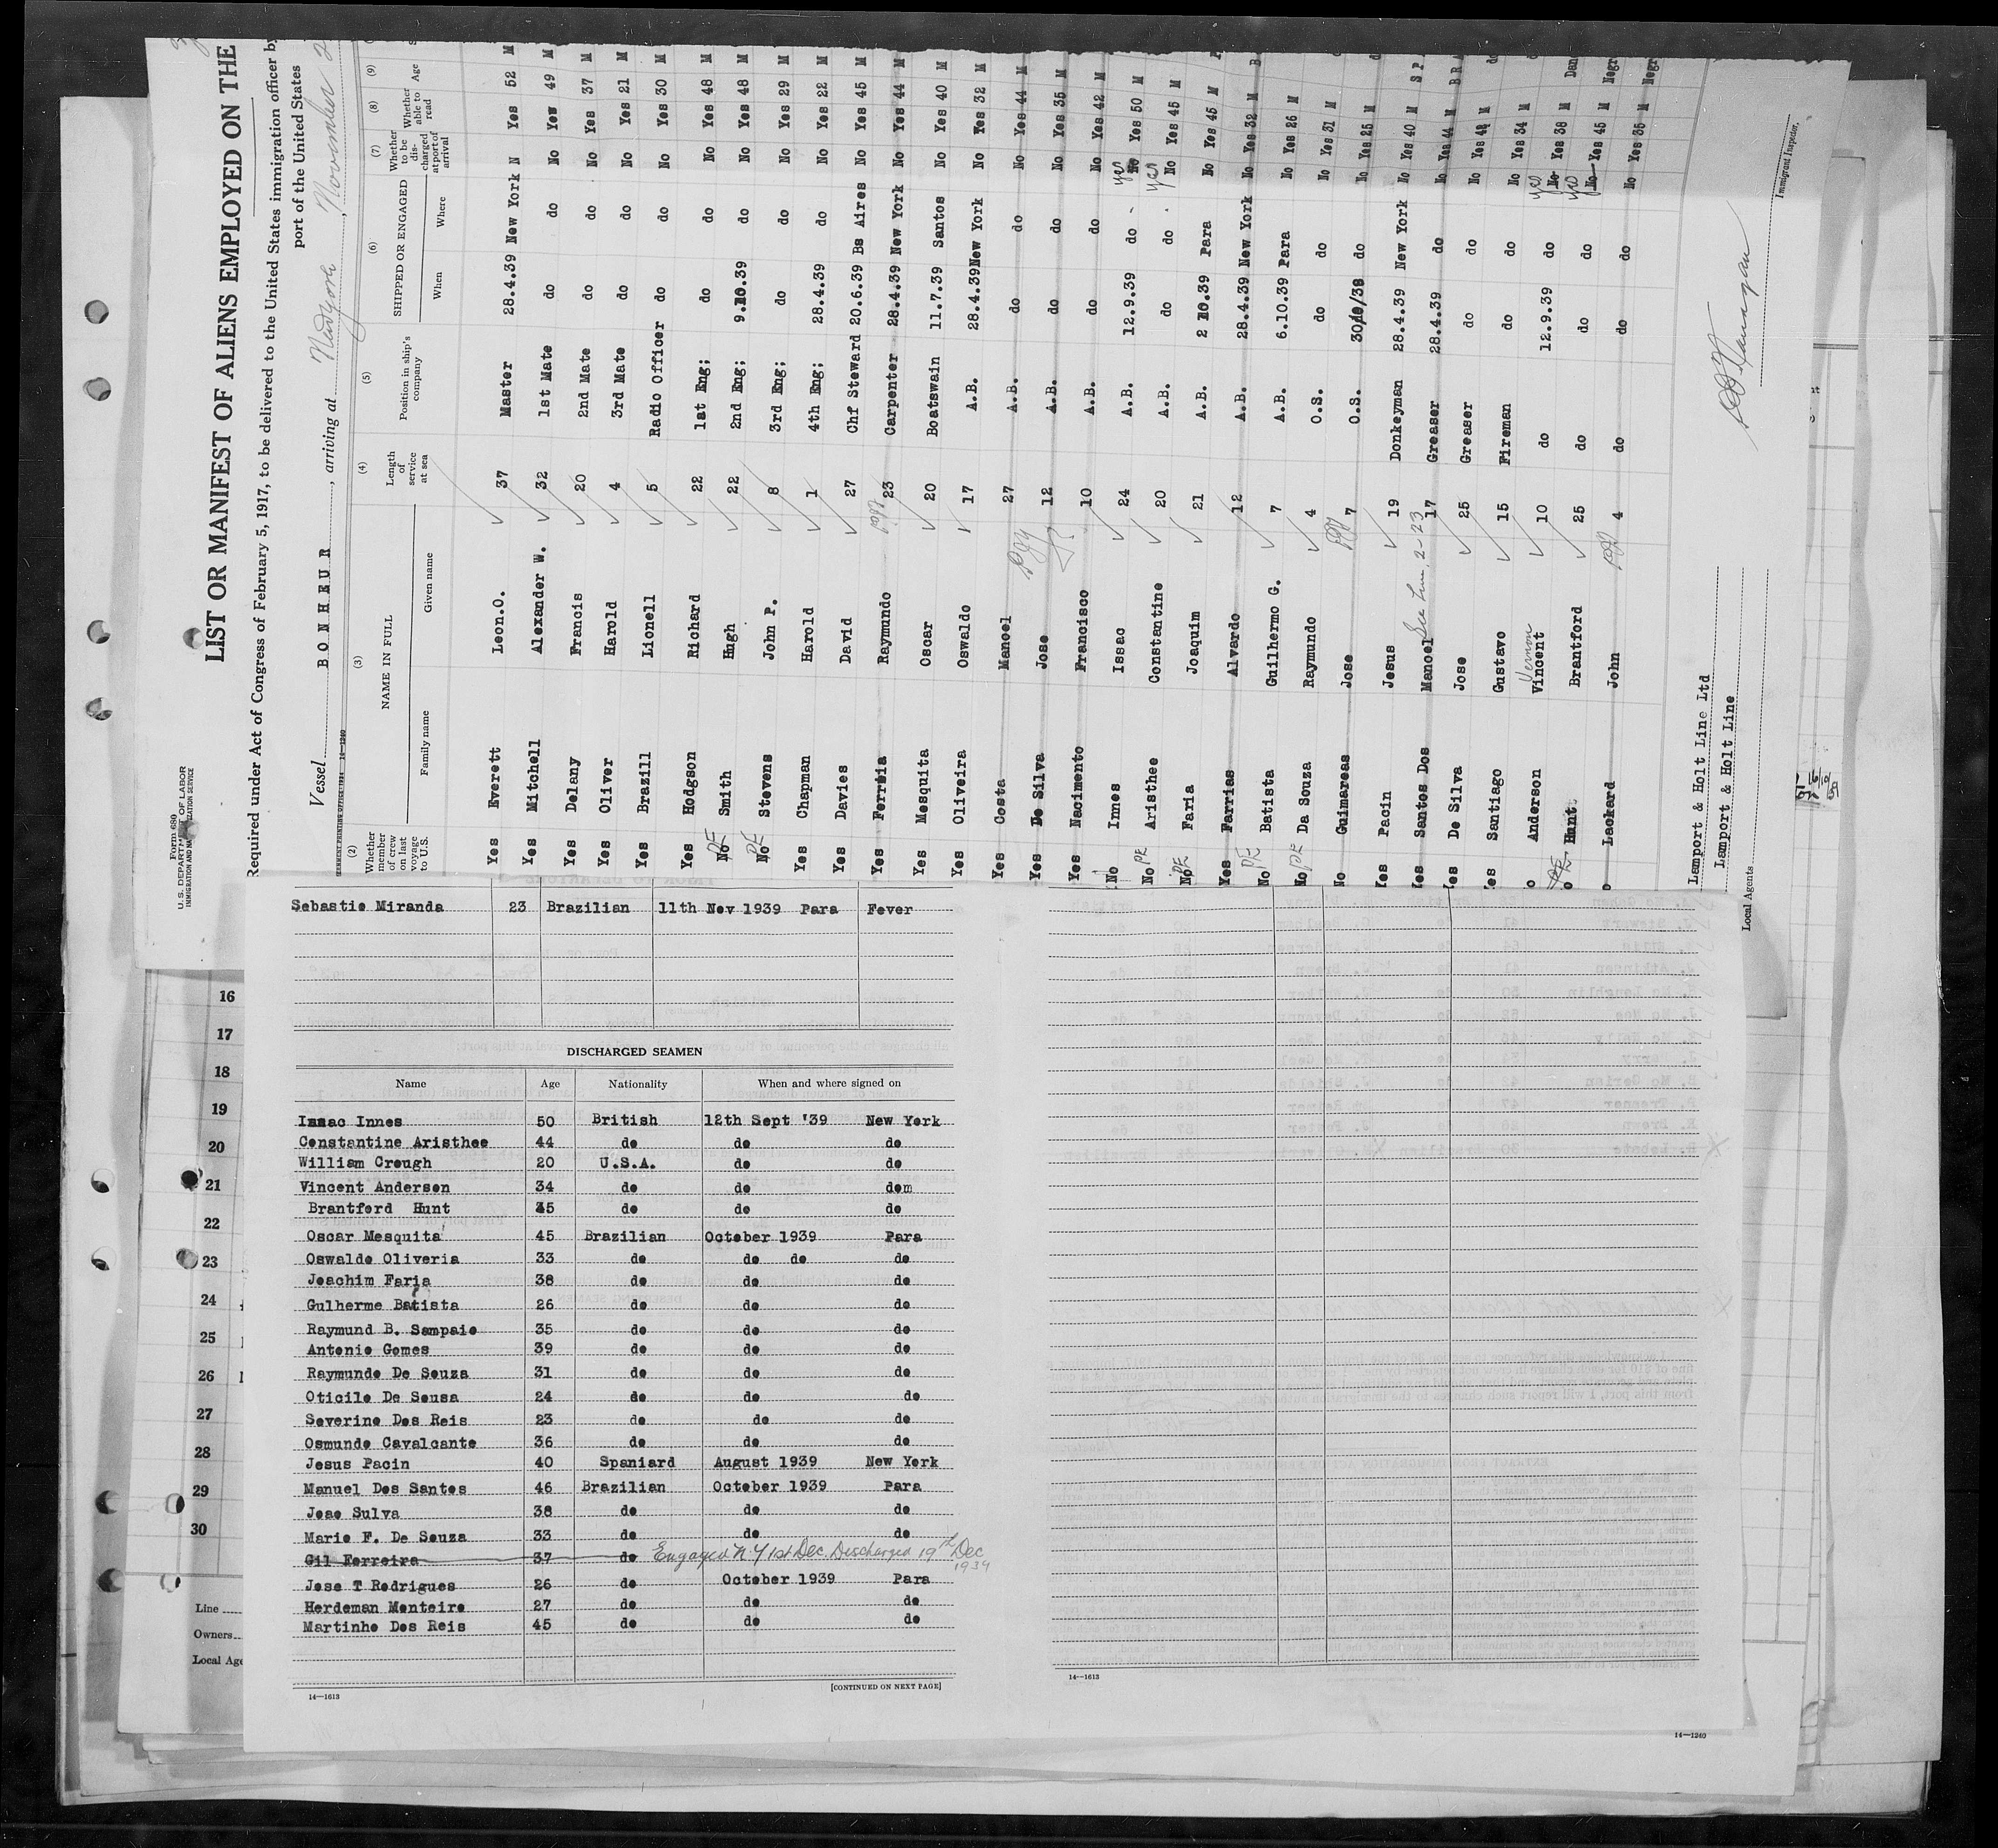 Form 680
U. S. DEPARTMENT OF LABOR
IMMIGRATION AND NATURALIZATION SERVICE
LIST OR MANIFEST OF ALIENS EMPLOYED ON THE
Required under Act of Congress of February 5, 1917, to be delivered to the United States immigration officer by
port of the United States
Vessel BONHEUR, arriving at Newyork, November 2
14—1240
(2) (3) (4) (5) (6) (7) (8) (9)
Whether member of crew on last voyage to U.S. NAME IN FULL Family name Given name Length of service at sea Position in ship's company SHIPPED OR ENGAGED When Where Whether to be discharged at port of arrival Whether able to read Age
Yes Everett Leon.O. 37 Master 28.4.39 New York N Yes 52 M
Yes Mitchell Alexander W. 32 1st Mate do do No Yes 49 M
Yes Delany Francis 20 2nd Mate do do No Yes 37 M
Yes Oliver Harold 4 3rd Mate do do No Yes 21 M
Yes Brazill Lionell 5 Radio Officer do do No Yes 30 M
Yes Hodgson Richard 22 1st Eng; do do No Yes 48 M
No PE Smith Hugh 22 2nd Eng; 9.10.39 do No Yes 48 M
No PE Stevens John P. 8 3rd Eng; do do No Yes 29 M
Yes Chapman Harold 1 4th Eng; 28.4.39 do No Yes 22 M
Yes Davies David 27 Chf Steward 20.6.39 Bs Aires No Yes 45 M
Yes Ferreia Raymundo 23 Carpenter 28.4.39 New York No Yes 44 M
Yes Mesquita Oscar 20 Boatswain 11.7.39 Santos No Yes 40 M
Yes Oliveira Oswaldo 17 A.B. 28.4.39 New York No Yes 32 M
Yes Costa Manoel 27 A.B. do do No Yes 44 M
Yes De Silva Jose 12 A.B. do do No Yes 35 M
Yes Nacimento Francisco 10 A.B. do do No Yes 42 M
No Innes Issac 24 A.B. 12.9.39 do yes No Yes 50 M
No PE Aristhee Constantine 20 A.B. do do yes No Yes 45 M
No PE Faria Joaquim 21 A.B. 2 10.39 Para No Yes 45 M
Yes Farrias Alvardo 12 A.B. 28.4.39 New York No Yes 32 M B
No PE Batista Guilhermo G. 7 A.B. 6.10.39 Para No Yes 26 M
No PE Da Souza Raymundo 4 O.S. do do No Yes 31 M
No Guimareas Jose 7 O.S. do No Yes 25 M d
Yes Pacin Jesus 19 Donkeyman 28.4.39 New York No Yes 40 M S P
Yes Santos Dos Manoel See Line 2-23 17 Greaser 28.4.39 do No Yes 44 M B R A
Yes De Silva Jose 25 Greaser do do No Yes 42 M do
Yes Santiago Gustavo 15 Fireman do do No Yes 34 M
o Anderson Vernon Vincent 10 do 12.9.39 do yes No Yes 38 M Dan
o Hunt Brantford 25 do do do yes No Yes 45 M Negr
o Lackard John 4 do do do No Yes 35 M Negr
Lamport & Holt Line Ltd
Lamport & Holt Line
Local Agents
Immigrant Inspector.
Sebastie Miranda 23 Brazilian 11th Nov 1939 Para Fever
DISCHARGED SEAMEN
Name Age Nationality When and where signed on
Isaac Innes 50 British 12th Sept '39 New York
Constantine Aristhee 44 do do do
William Creugh 20 U.S.A. do do
Vincent Anderson 34 do do dom
Brantford Hunt 45 do do do
Oscar Mesquita 45 Brazilian October 1939 Para
Oswaldo Oliveria 33 do do do do
Joachim Faria 38 do do do
Gulherme Batista 26 do do do
Raymund B. Sampaio 35 do do do
Antonio Gomes 39 do do do
Raymundo De Souza 31 do do do
Oticilo De Sousa 24 do do do
Severino Dos Reis 23 do do do
Osmundo Cavalcante 36 do do do
Jesus Pacin 40 Spaniard August 1939 New York
Manuel Dos Santos 46 Brazilian October 1939 Para
Joao Sulva 38 do do do
Mario F. De Souza 33 do do do
Gil Ferreira 37 do Engaged N.Y 1st Dec. Discharged 19th Dec 1939
Jose T Rodrigues 26 do October 1939 Para
Herdeman Monteiro 27 do do do
Martinho Dos Reis 45 do do do
14—1613
[CONTINUED ON NEXT PAGE]
14—1613
14—1240
16
17
18
19
20
21
22
23
24
25
26
27
28
29
30
Line
Owners
Local Age